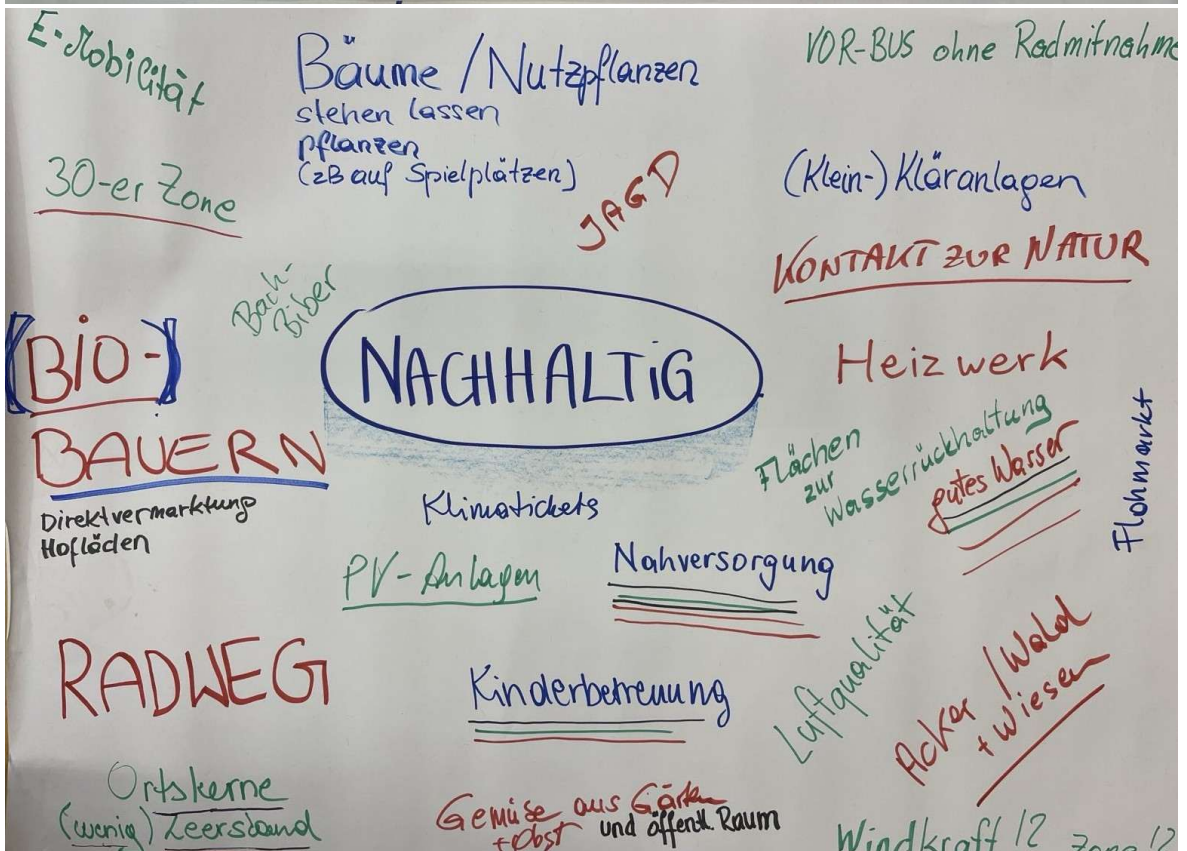 E-Mobilität
Bäume / Nutzpflanzen
stehen lassen
pflanzen
(zB auf Spielplätzen)
VOR-BUS ohne Radmitnahme
30-er Zone
JAGD
(Klein-) Kläranlagen
KONTAKT ZUR NATUR
Bach-
Biber
NACHHALTiG
(BiO-)
BAUERN
Direktvermarktung
Hofläden
Heizwerk
Flächen
zur
Wasserrückhaltung
gutes Wasser
Flohmarkt
Klimatickets
PV-Anlagen
Nahversorgung
RADWEG
Kinderbetreuung
Luftqualität
Acker / Wald
+ Wiesen
Ortskerne
(wenig) Leerstand
Gemüse aus Gärten
+ Obst und öffentl. Raum
Windkraft